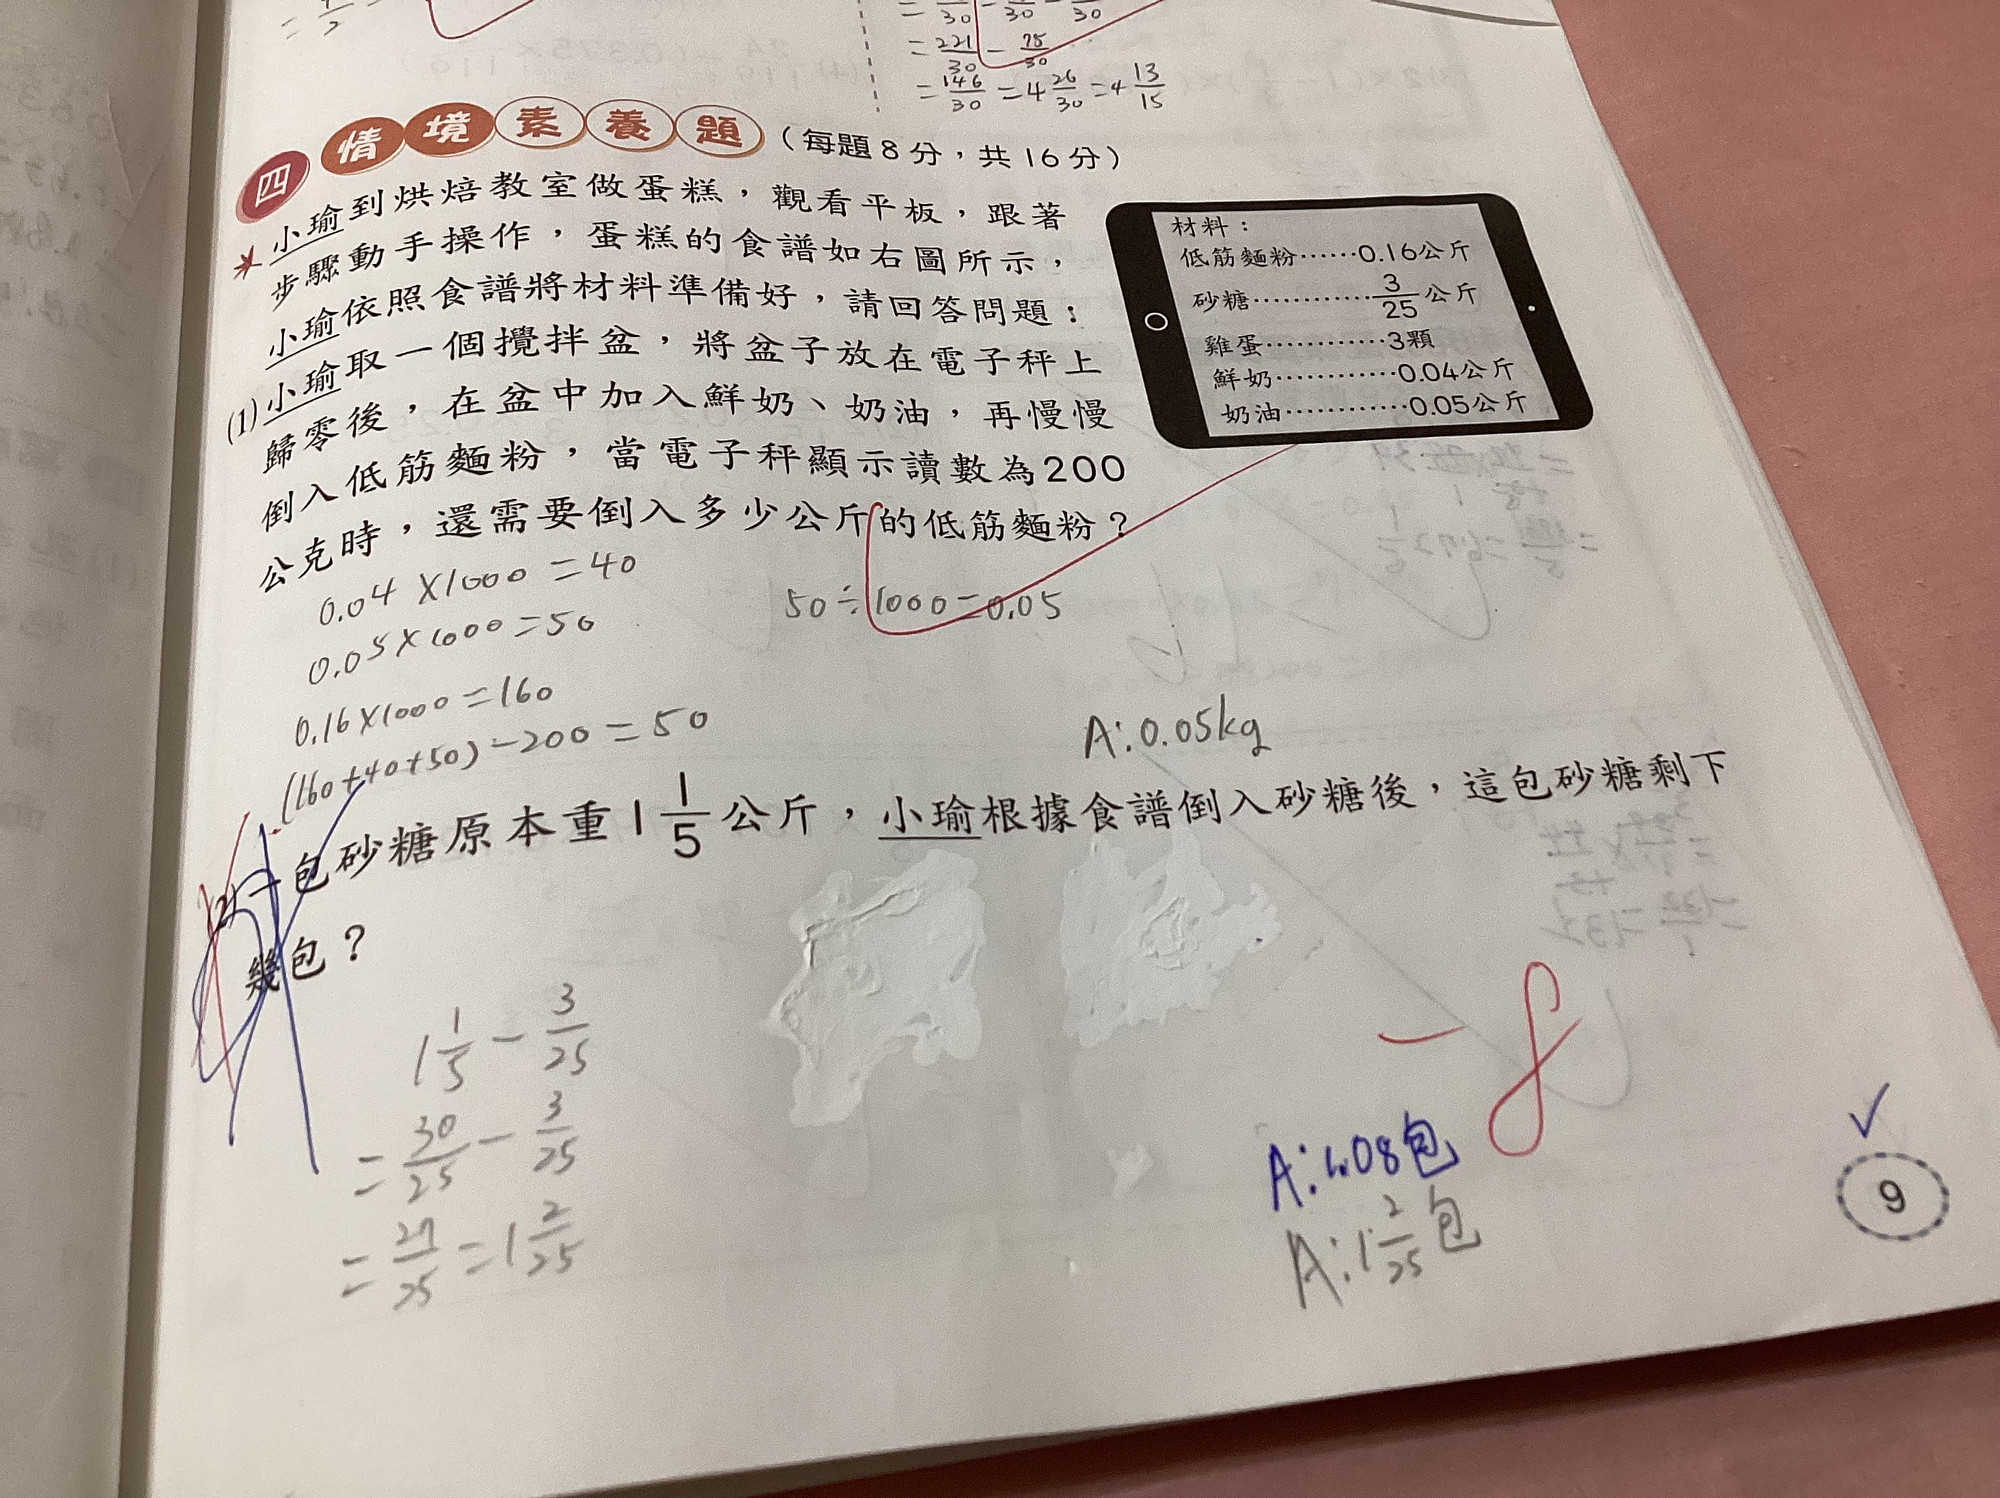 = 221/30 − 75/30
= 146/30 = 4 26/30 = 4 13/15
四 情境素養題（每題8分，共16分）
小瑜到烘焙教室做蛋糕，觀看平板，跟著
步驟動手操作，蛋糕的食譜如右圖所示，
小瑜依照食譜將材料準備好，請回答問題：
材料：
低筋麵粉……0.16公斤
砂糖…………3/25公斤
雞蛋…………3顆
鮮奶…………0.04公斤
奶油…………0.05公斤
(1)小瑜取一個攪拌盆，將盆子放在電子秤上
歸零後，在盆中加入鮮奶、奶油，再慢慢
倒入低筋麵粉，當電子秤顯示讀數為200
公克時，還需要倒入多少公斤的低筋麵粉？
0.04×1000=40
0.05×1000=50
0.16×1000=160
(160+40+50)−200=50
50÷1000=0.05
A:0.05kg
(2)一包砂糖原本重1 1/5公斤，小瑜根據食譜倒入砂糖後，這包砂糖剩下
幾包？
1 1/5 − 3/25
= 30/25 − 3/25
= 27/25 = 1 2/25
−8
A:1.08包
A:1 2/25包
9